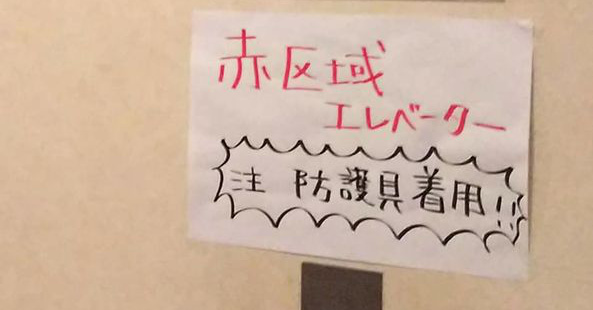 赤区域
エレベーター
注 防護具着用!!